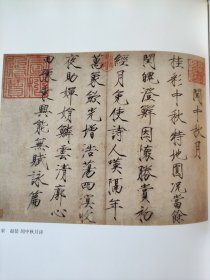 閏中秋月
桂彩中秋特地圓況當餘
閏魄澄鮮因懷勝賞初
經月免使詩人嘆隔年
萬象斂光增浩蕩四溟收
夜助嬋娟鱗雲清廓心
田豫乘興能無賦詠篇
宋 赵佶 闰中秋月诗